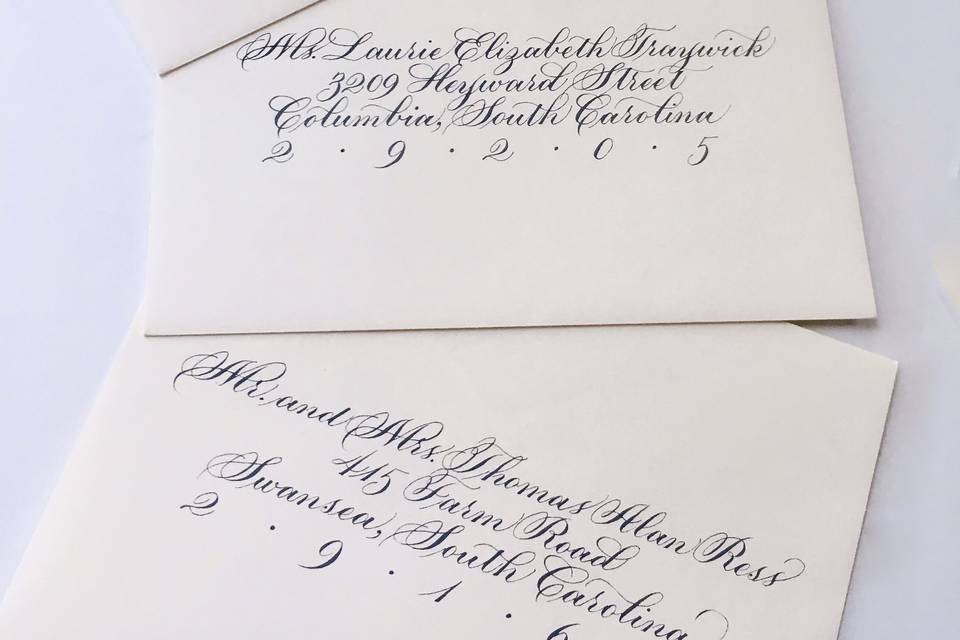 Ms. Laurie Elizabeth Traywick
3209 Heyward Street
Columbia, South Carolina
2 · 9 · 2 · 0 · 5
Mr. and Mrs. Thomas Alan Ress
415 Farm Road
Swansea, South Carolina
2 · 9 · 1 · 6